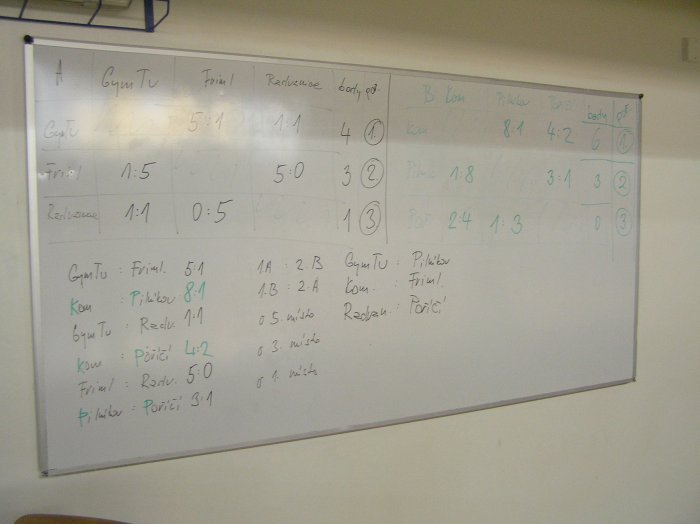 A GymTu Friml Radvanice body poř.
GymTu 5:1 1:1 4 1.
Friml 1:5 5:0 3 2
Radvanice 1:1 0:5 1 3
B Kom Pilníkov body poř.
Kom 8:1 4:2 6 1
1:8 3:1 3 2
Poř. 2:4 1:3 0 3
GymTu : Friml. 5:1
Kom : Pilníkov 8:1
GymTu : Radv. 1:1
Kom : Poříčí 4:2
Friml : Radv. 5:0
Pilníkov : Poříčí 3:1
1A : 2.B
1.B : 2.A
o 5. místo
o 3. místo
o 1. místo
GymTu : Pilníkov
Kom. : Friml.
Radvan. : Poříčí